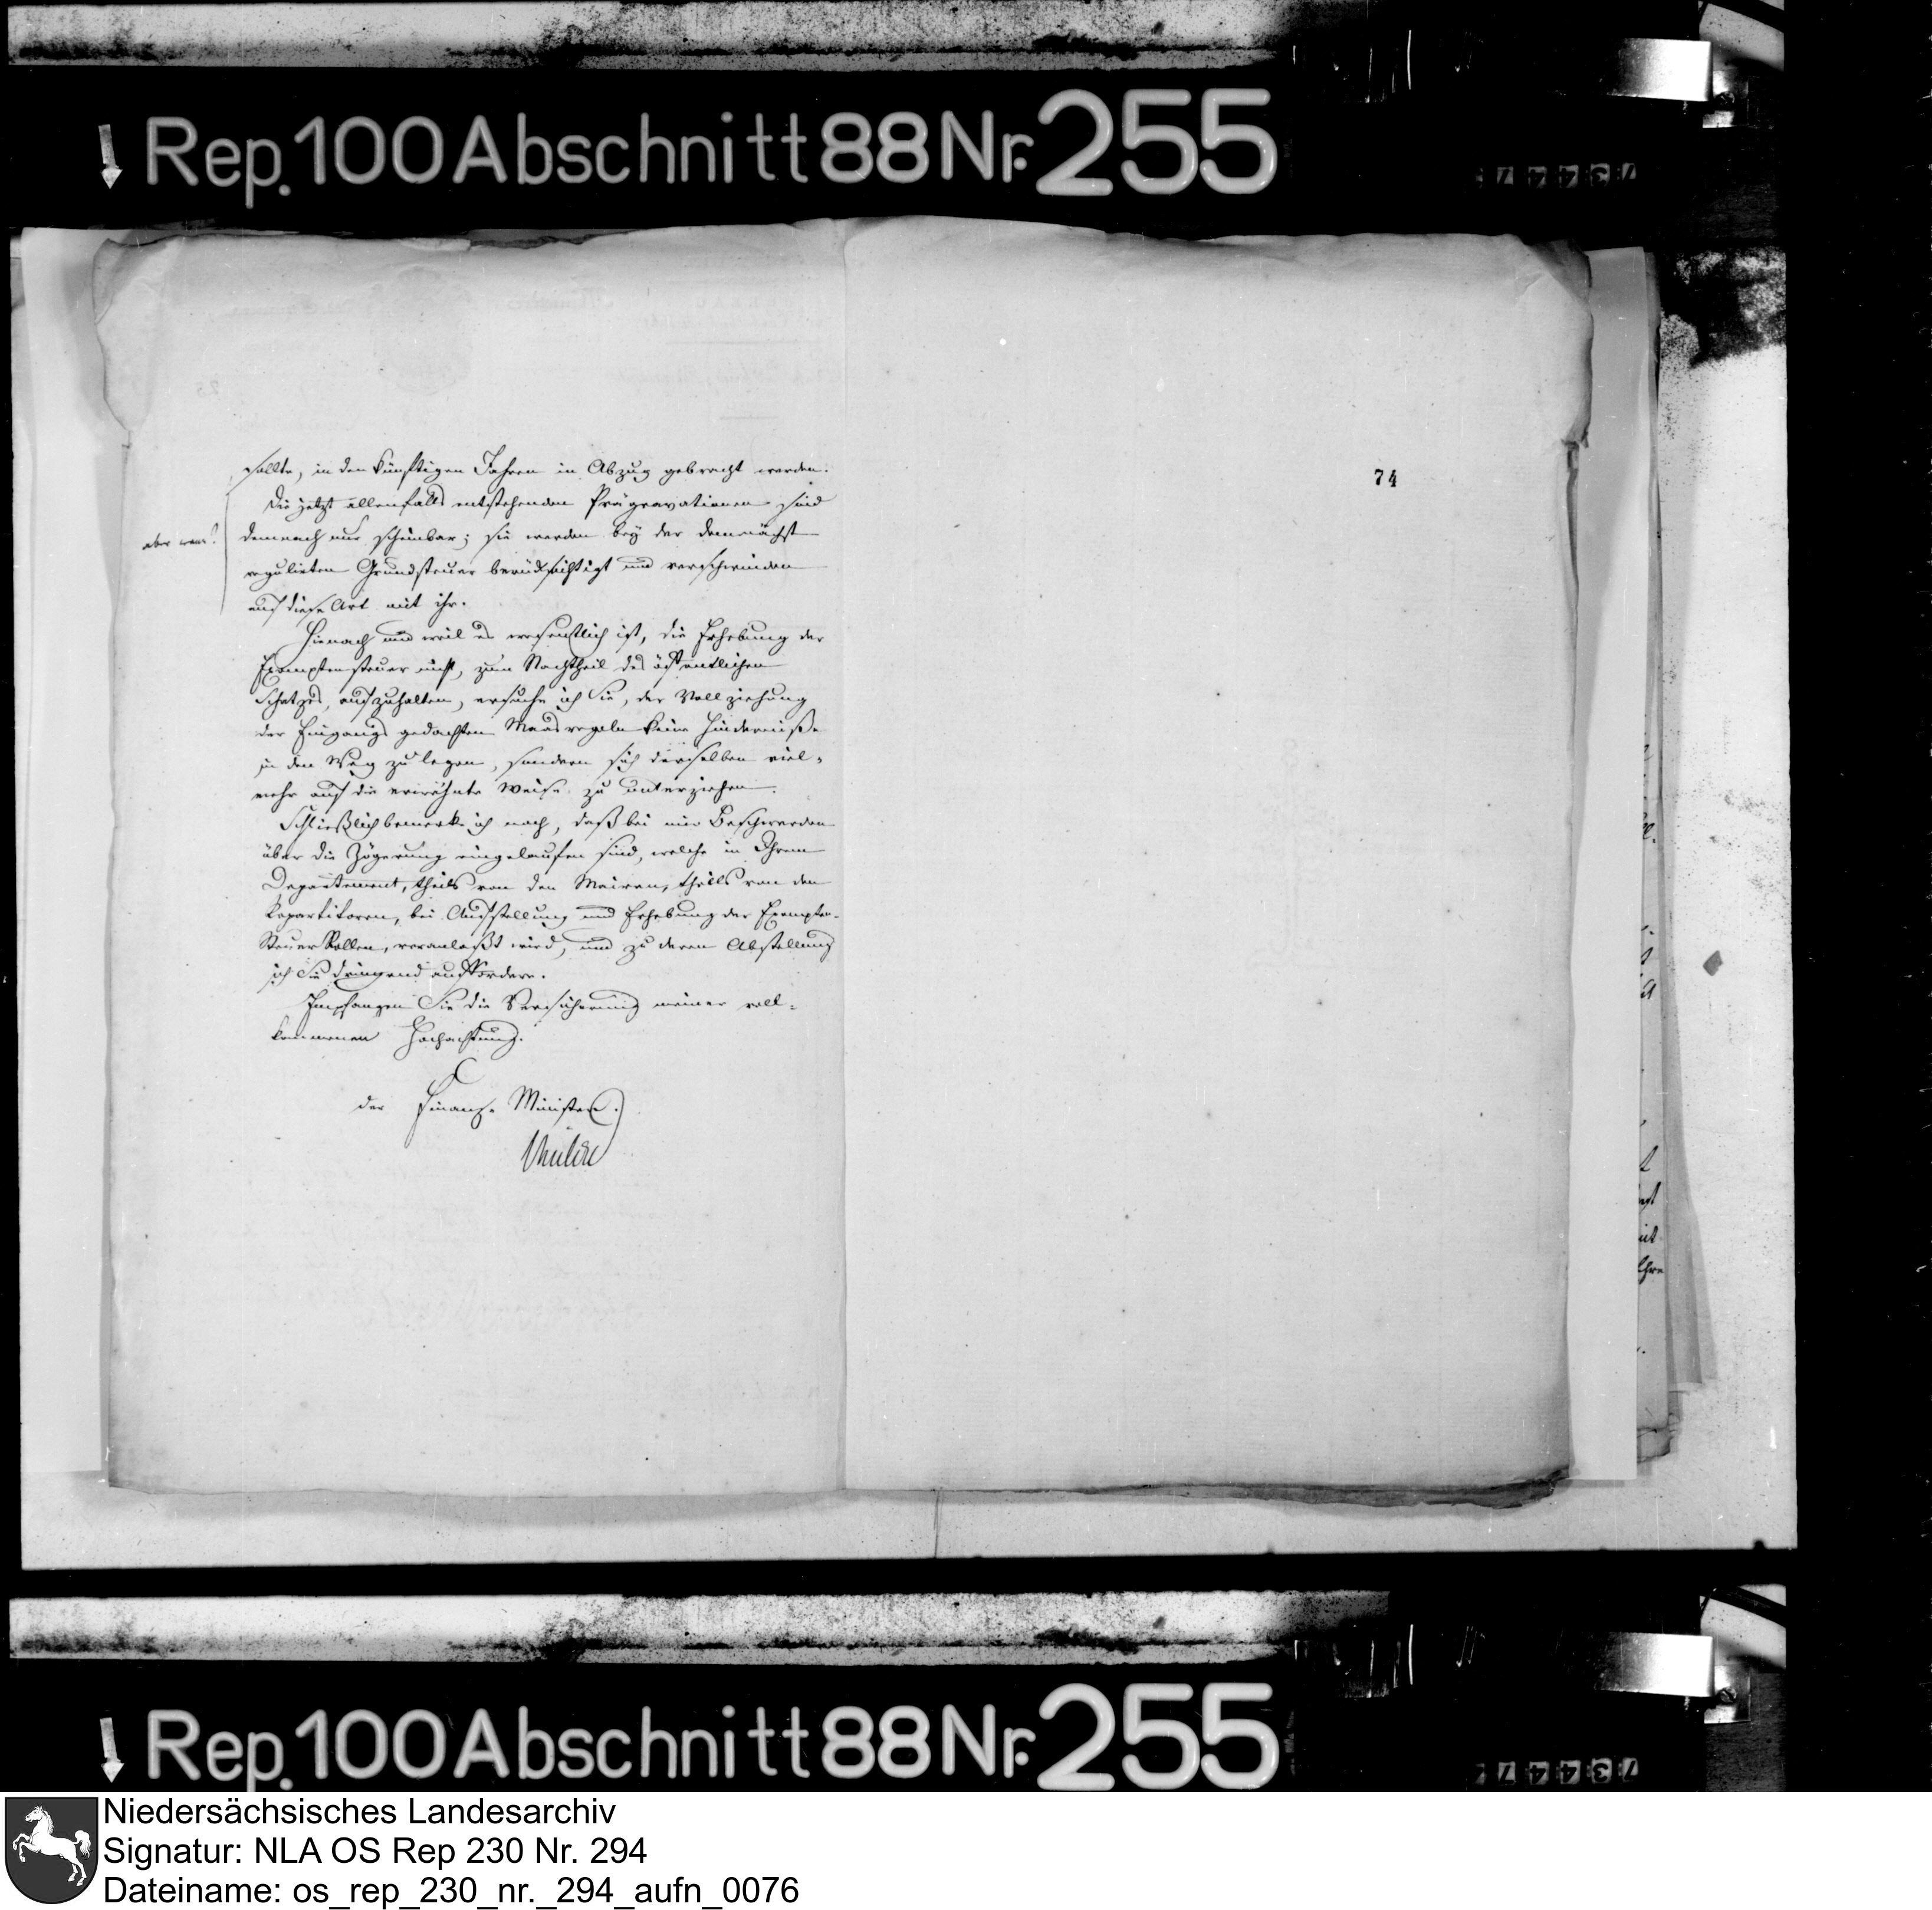 Rep. 100 Abschnitt 88 Nr. 255
73447
sollte, in den künftigen Jahren in Abzug gebracht werden.
Die jetzt allenfalls entstehenden Prägravationen sind
aber wann?
demnach nur scheinbar; sie werden bey der demnächst
regulirten Grundsteuer berücksichtigt und verschwinden
auf diese Art mit ihr.
Hienach und weil es wesentlich ist, die Erhebung der
Exemptensteuer nicht, zum Nachtheil des öffentlichen
Schatzes, aufzuhalten, ersuche ich Sie, der Vollziehung
der Eingangs gedachten Maasregeln keine Hinderniße
in den Weg zu legen, sondern sich derselben viel-
mehr auf die erwähnte Weise zu unterziehen.
Schließlich bemerke ich noch, daß bei mir Beschwerden
über die Zögerung eingelaufen sind, welche in Ihrem
Departement, theils von den Mairen, theils von den
Repartitoren, bei Aufstellung und Erhebung der Exempten-
Steuer Rollen, veranlaßt wird, und zu deren Abstellung
ich Sie dringend auffordere.
Empfangen Sie die Versicherung meiner voll-
kommenen Hochachtung.
der Finanz-Minister.
74
Rep. 100 Abschnitt 88 Nr. 255
73447
Niedersächsisches Landesarchiv
Signatur: NLA OS Rep 230 Nr. 294
Dateiname: os_rep_230_nr._294_aufn_0076